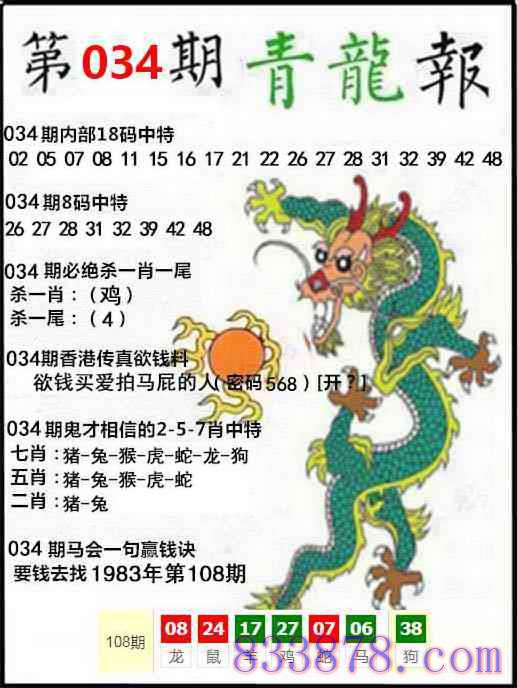 第034期青龍報
034期内部18码中特
02 05 07 08 11 15 16 17 21 22 26 27 28 31 32 39 42 48
034期8码中特
26 27 28 31 32 39 42 48
034期必绝杀一肖一尾
杀一肖：（鸡）
杀一尾：（4）
034期香港传真欲钱料
欲钱买爱拍马屁的人(密码568)[开?]
034期鬼才相信的2-5-7肖中特
七肖：猪-兔-猴-虎-蛇-龙-狗
五肖：猪-兔-猴-虎-蛇
二肖：猪-兔
034期马会一句赢钱诀
要钱去找1983年第108期
108期 08 24 17 27 07 06 38
龙 鼠 羊 鸡 蛇 马 狗
833878.com